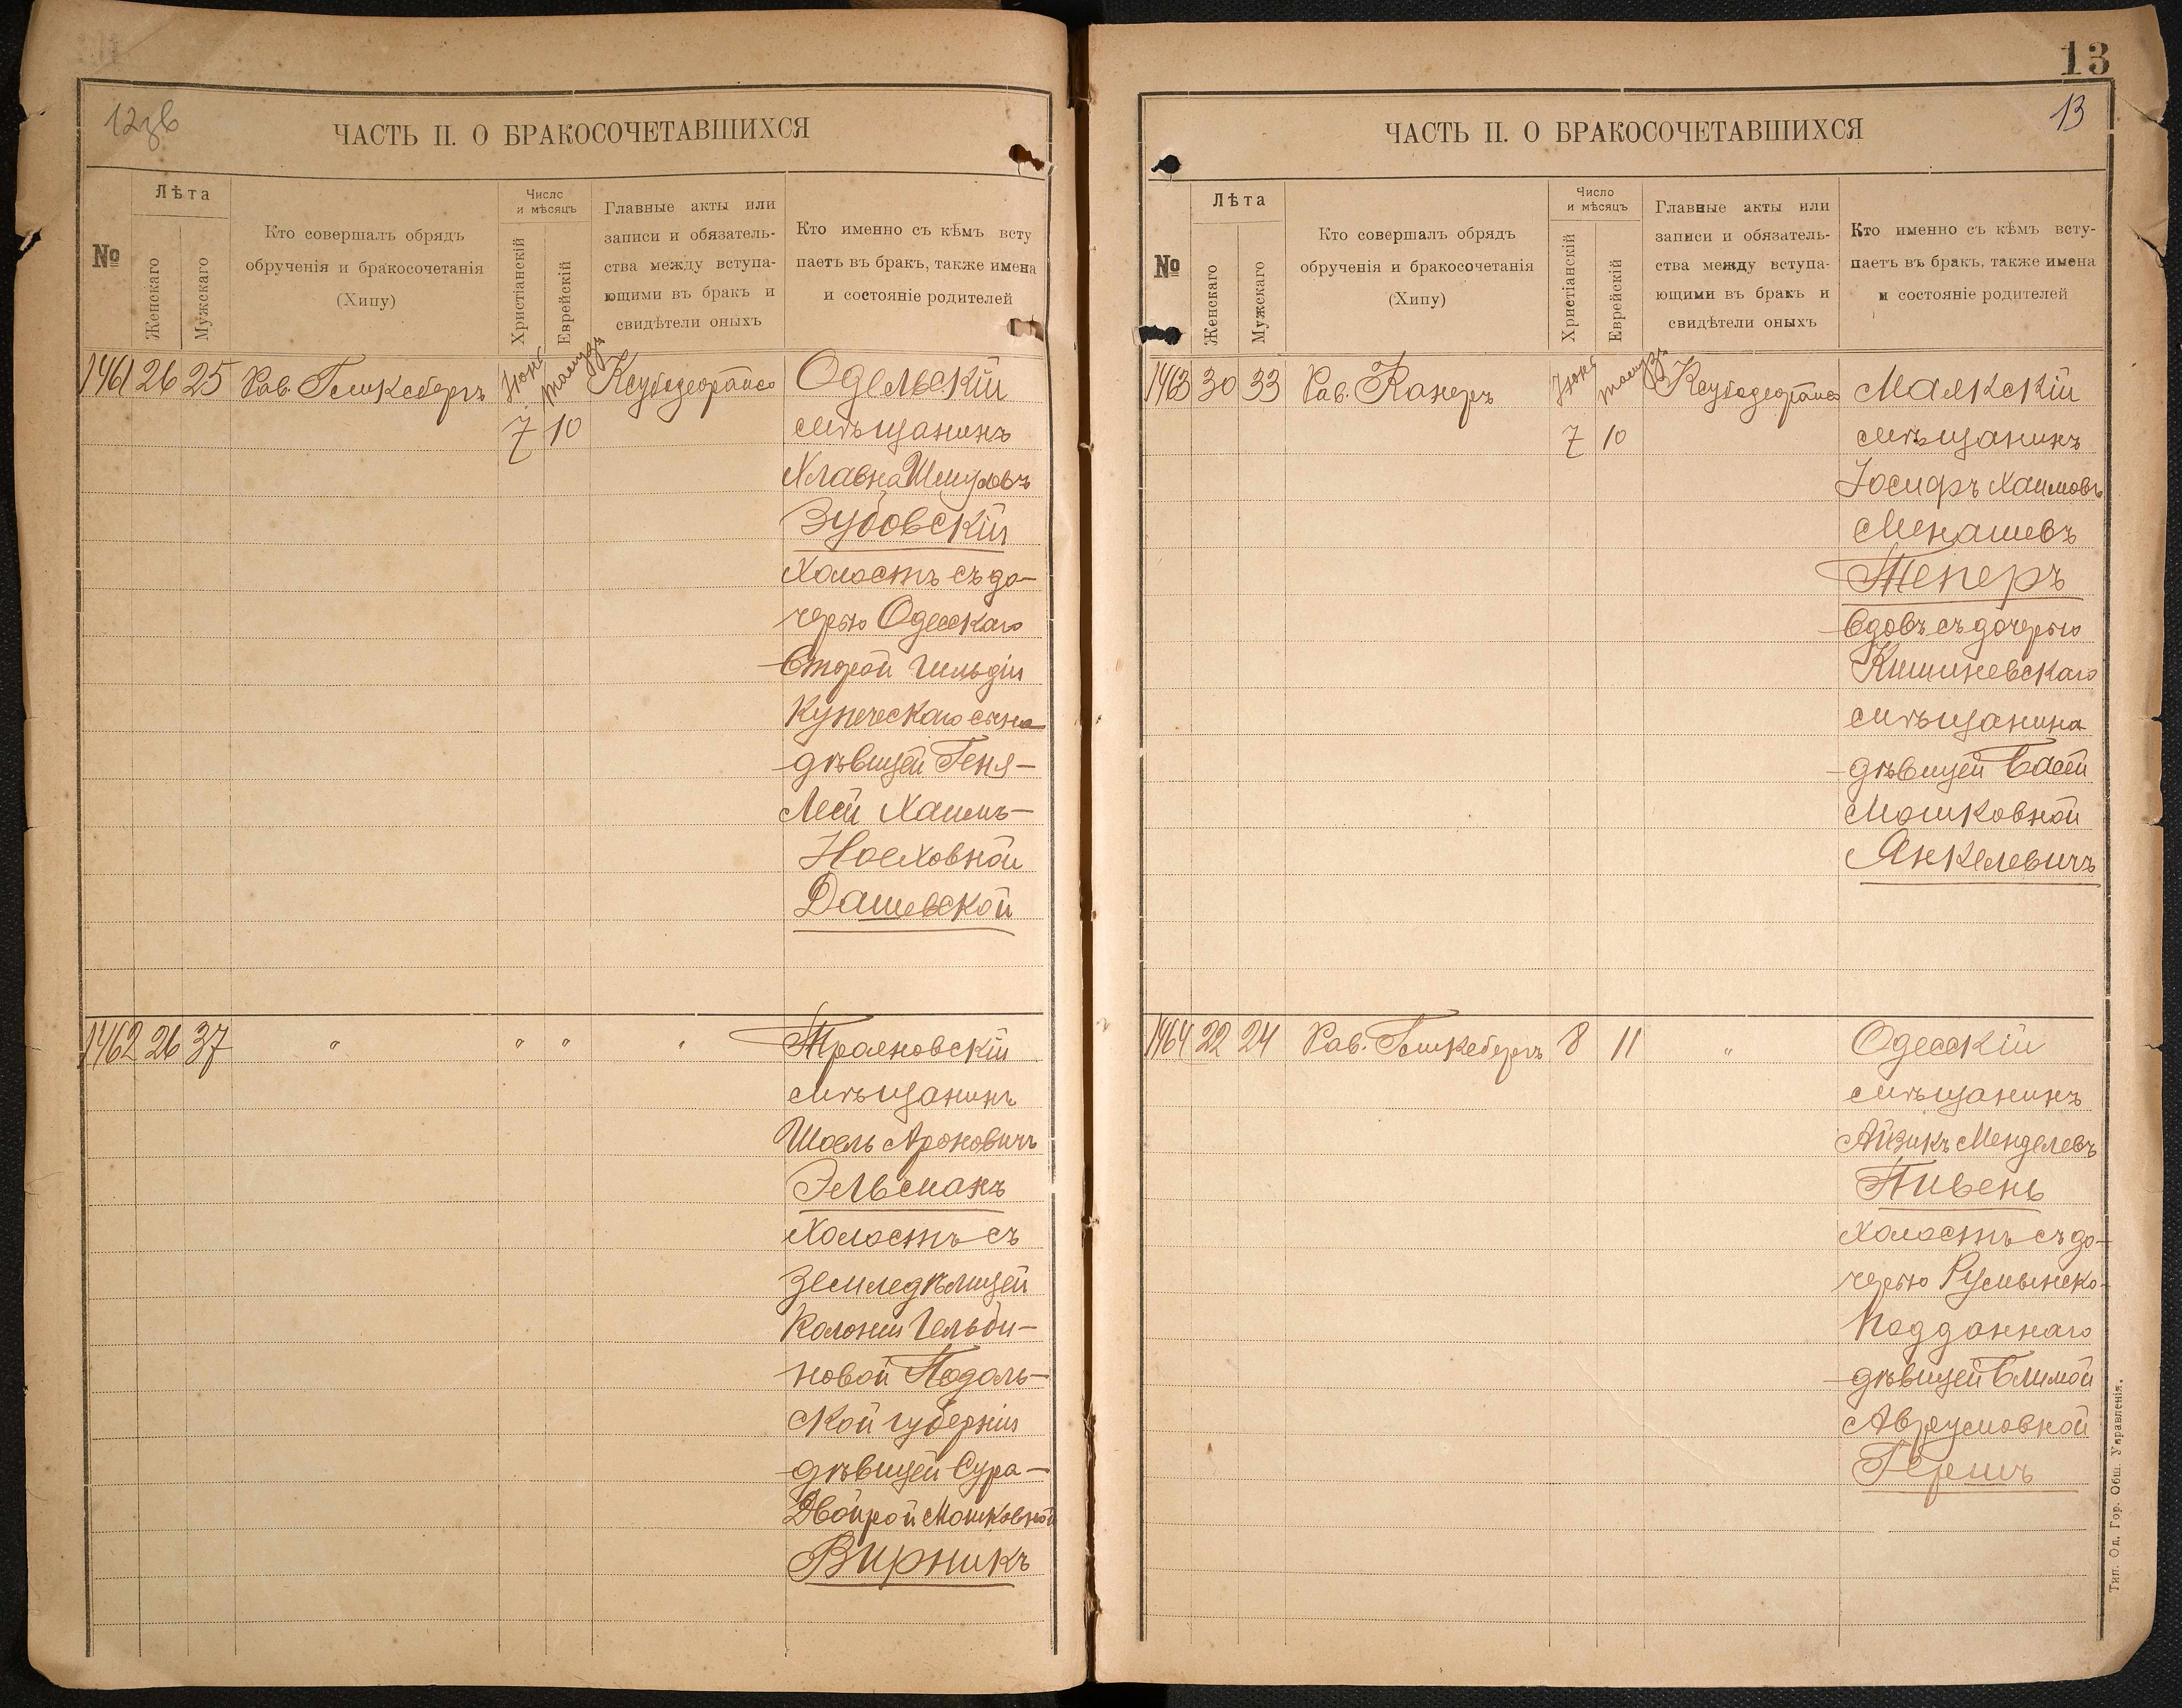 12 зв
ЧАСТЬ II. О БРАКОСОЧЕТАВШИХСЯ
№
Лѣта
Женскаго
Мужскаго
Кто совершалъ обрядъ
обрученія и бракосочетанія
(Хипу)
Число
и мѣсяцъ
Христіанскій
Еврейскій
Главные акты или
записи и обязатель-
ства между вступа-
ющими въ бракъ и
свидѣтели оныхъ
Кто именно съ кѣмъ всту
паетъ въ бракъ, также имена
и состояніе родителей
1461 26 25 Рав. Іюнь Тамузъ Одельскій
7 10 мѣщанинъ
Хлавна Шмуловъ
Зубовскій
Холостъ съ до-
черью Одесскаго
второй гильдіи
Купеческаго сына
дѣвицей Геня-
Леей Хаимъ-
Ноеховной
Дашевской
1462 26 37 " " " " Трояновскій
мѣщанинъ
Шоель Ароновичъ
Эльманъ
Холостъ съ
земледѣлицей
Колоніи Гельби-
новой Подоль-
ской губерніи
дѣвицей Сура-
Двойрой Мошковной
Вирникъ
13
13
ЧАСТЬ II. О БРАКОСОЧЕТАВШИХСЯ
№
Лѣта
Женскаго
Мужскаго
Кто совершалъ обрядъ
обрученія и бракосочетанія
(Хипу)
Число
и мѣсяцъ
Христіанскій
Еврейскій
Главные акты или
записи и обязатель-
ства между вступа-
ющими въ бракъ и
свидѣтели оныхъ
Кто именно съ кѣмъ всту-
паетъ въ бракъ, также имена
и состояніе родителей
1463 30 33 Рав. Канеръ Іюнь Тамузъ Маякскій
7 10 мѣщанинъ
Іосифъ Хаимовъ
Менашевъ
Теперъ
вдовъ съ дочерью
Кишиневскаго
мѣщанина
дѣвицей Басей
Мошковной
Янкелевичъ
1464 22 24 Рав. 8 11 " Одесскій
мѣщанинъ
Айзикъ Менделевъ
Пивень
Холостъ съ до-
черью Румынско-
подданнаго
дѣвицей Блимой
Аврумовной
Гершъ
Тип. Од. Гор. Общ. Управленія.